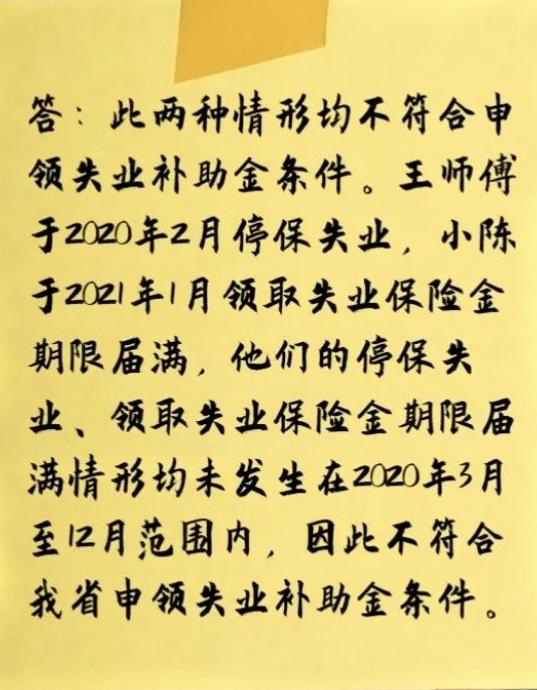 答：此两种情形均不符合申
领失业补助金条件。王师傅
于2020年2月停保失业，小陈
于2021年1月领取失业保险金
期限届满，他们的停保失
业、领取失业保险金期限届
满情形均未发生在2020年3月
至12月范围内，因此不符合
我省申领失业补助金条件。